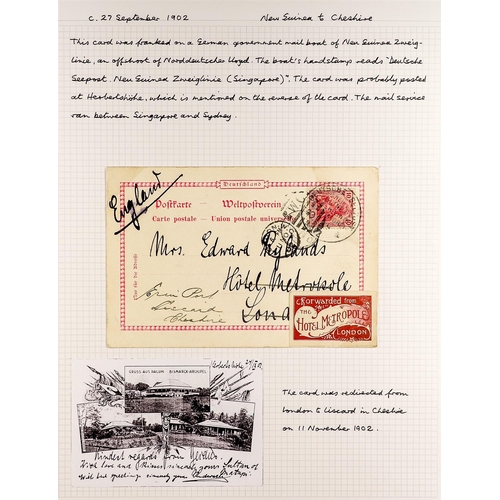 c. 27 September 1902
New Guinea to Cheshire
This card was franked on a German government mail boat of Neu Guinea Zweig-
linie, an offshoot of Norddeutscher Lloyd. The boat's handstamp reads "Deutsche
Seepost. Neu Guinea Zweiglinie (Singapore)". The card was probably posted
at Herbertshöhe, which is mentioned on the reverse of the card. The mail service
ran between Singapore and Sydney.
Deutschland
Postkarte Weltpostverein
Carte postale Union postale universelle
England
Mrs. Edward Rylands
Hôtel Metropole
London
Liscard
Cheshire
Forwarded from
THE
HOTEL METROPOLE
LONDON
GRUSS AUS RALUM BISMARCK-ARCHIPEL
Kindest regards from
With love and
sincerely yours
The card was redirected from
London to Liscard in Cheshire
on 11 November 1902.